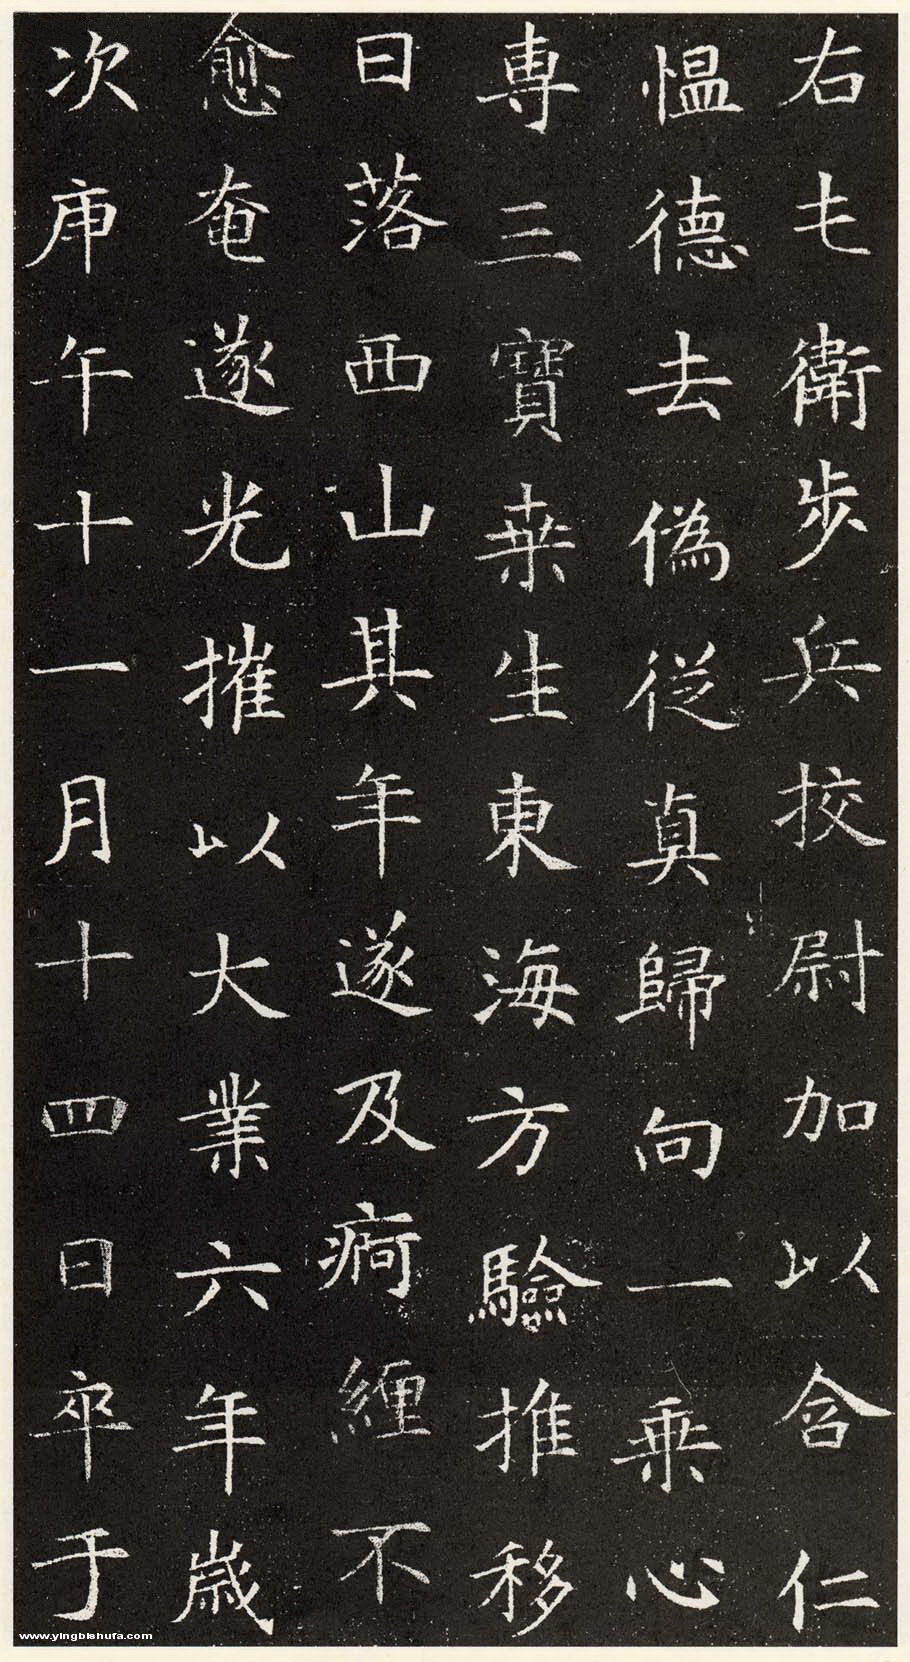 右屯衛步兵挍尉加以含仁
愠德去偽從真歸向一乘心
専三寶桒生東海方驗推移
日落西山其年遂及痾纏不
愈奄遂光摧以大業六年歲
次庚午十一月十四日卒于
www.yingbishufa.com